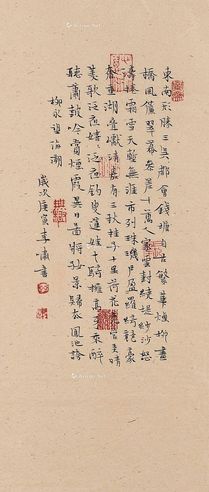 東南形勝三吳都會錢塘自古繁華煙柳畫
橋風簾翠幕參差十萬人家雲樹繞堤沙怒
濤捲霜雪天塹無涯市列珠璣戶盈羅綺競豪
奢重湖疊巘清嘉有三秋桂子十里荷花羌管弄晴
菱歌泛夜嬉嬉釣叟蓮娃千騎擁高牙乘醉
聽簫鼓吟賞煙霞異日圖將好景歸去鳳池誇
柳永望海潮
歲次庚寅李書